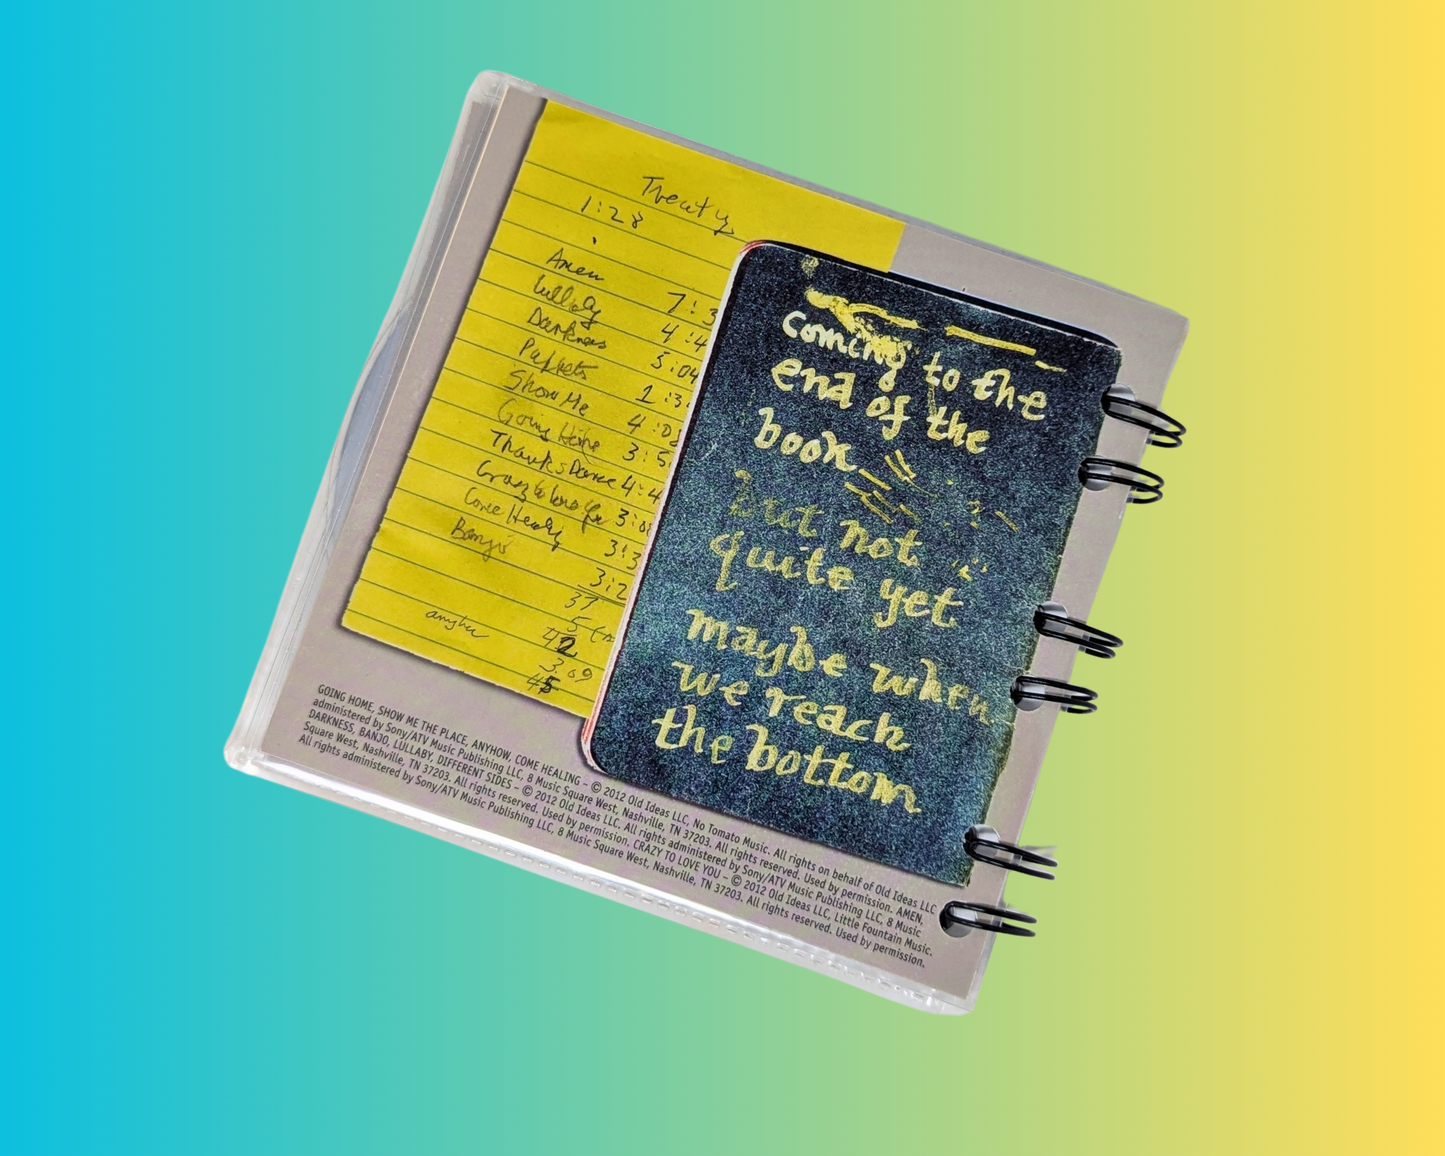 Twenty
1:28
Amen 7:3
Lullaby 4:4
Darkness 5:04
Puppets 2:3
Show Me 4:0
Going Home 3:5
Thanks Dance 4:4
Crazy to love 3:0
Come Healing 3:3
Banjo 3:2
37
5
42
anyhow 3.09
45
coming to the
end of the
book
but not
quite yet
maybe when
we reach
the bottom
GOING HOME, SHOW ME THE PLACE, ANYHOW, COME HEALING – © 2012 Old Ideas LLC, No Tomato Music. All rights on behalf of Old Ideas LLC
administered by Sony/ATV Music Publishing LLC, 8 Music Square West, Nashville, TN 37203. All rights reserved. Used by permission. AMEN,
DARKNESS, BANJO, LULLABY, DIFFERENT SIDES – © 2012 Old Ideas LLC. All rights administered by Sony/ATV Music Publishing LLC, 8 Music
Square West, Nashville, TN 37203. All rights reserved. Used by permission. CRAZY TO LOVE YOU – © 2012 Old Ideas LLC, Little Fountain Music.
All rights administered by Sony/ATV Music Publishing LLC, 8 Music Square West, Nashville, TN 37203. All rights reserved. Used by permission.